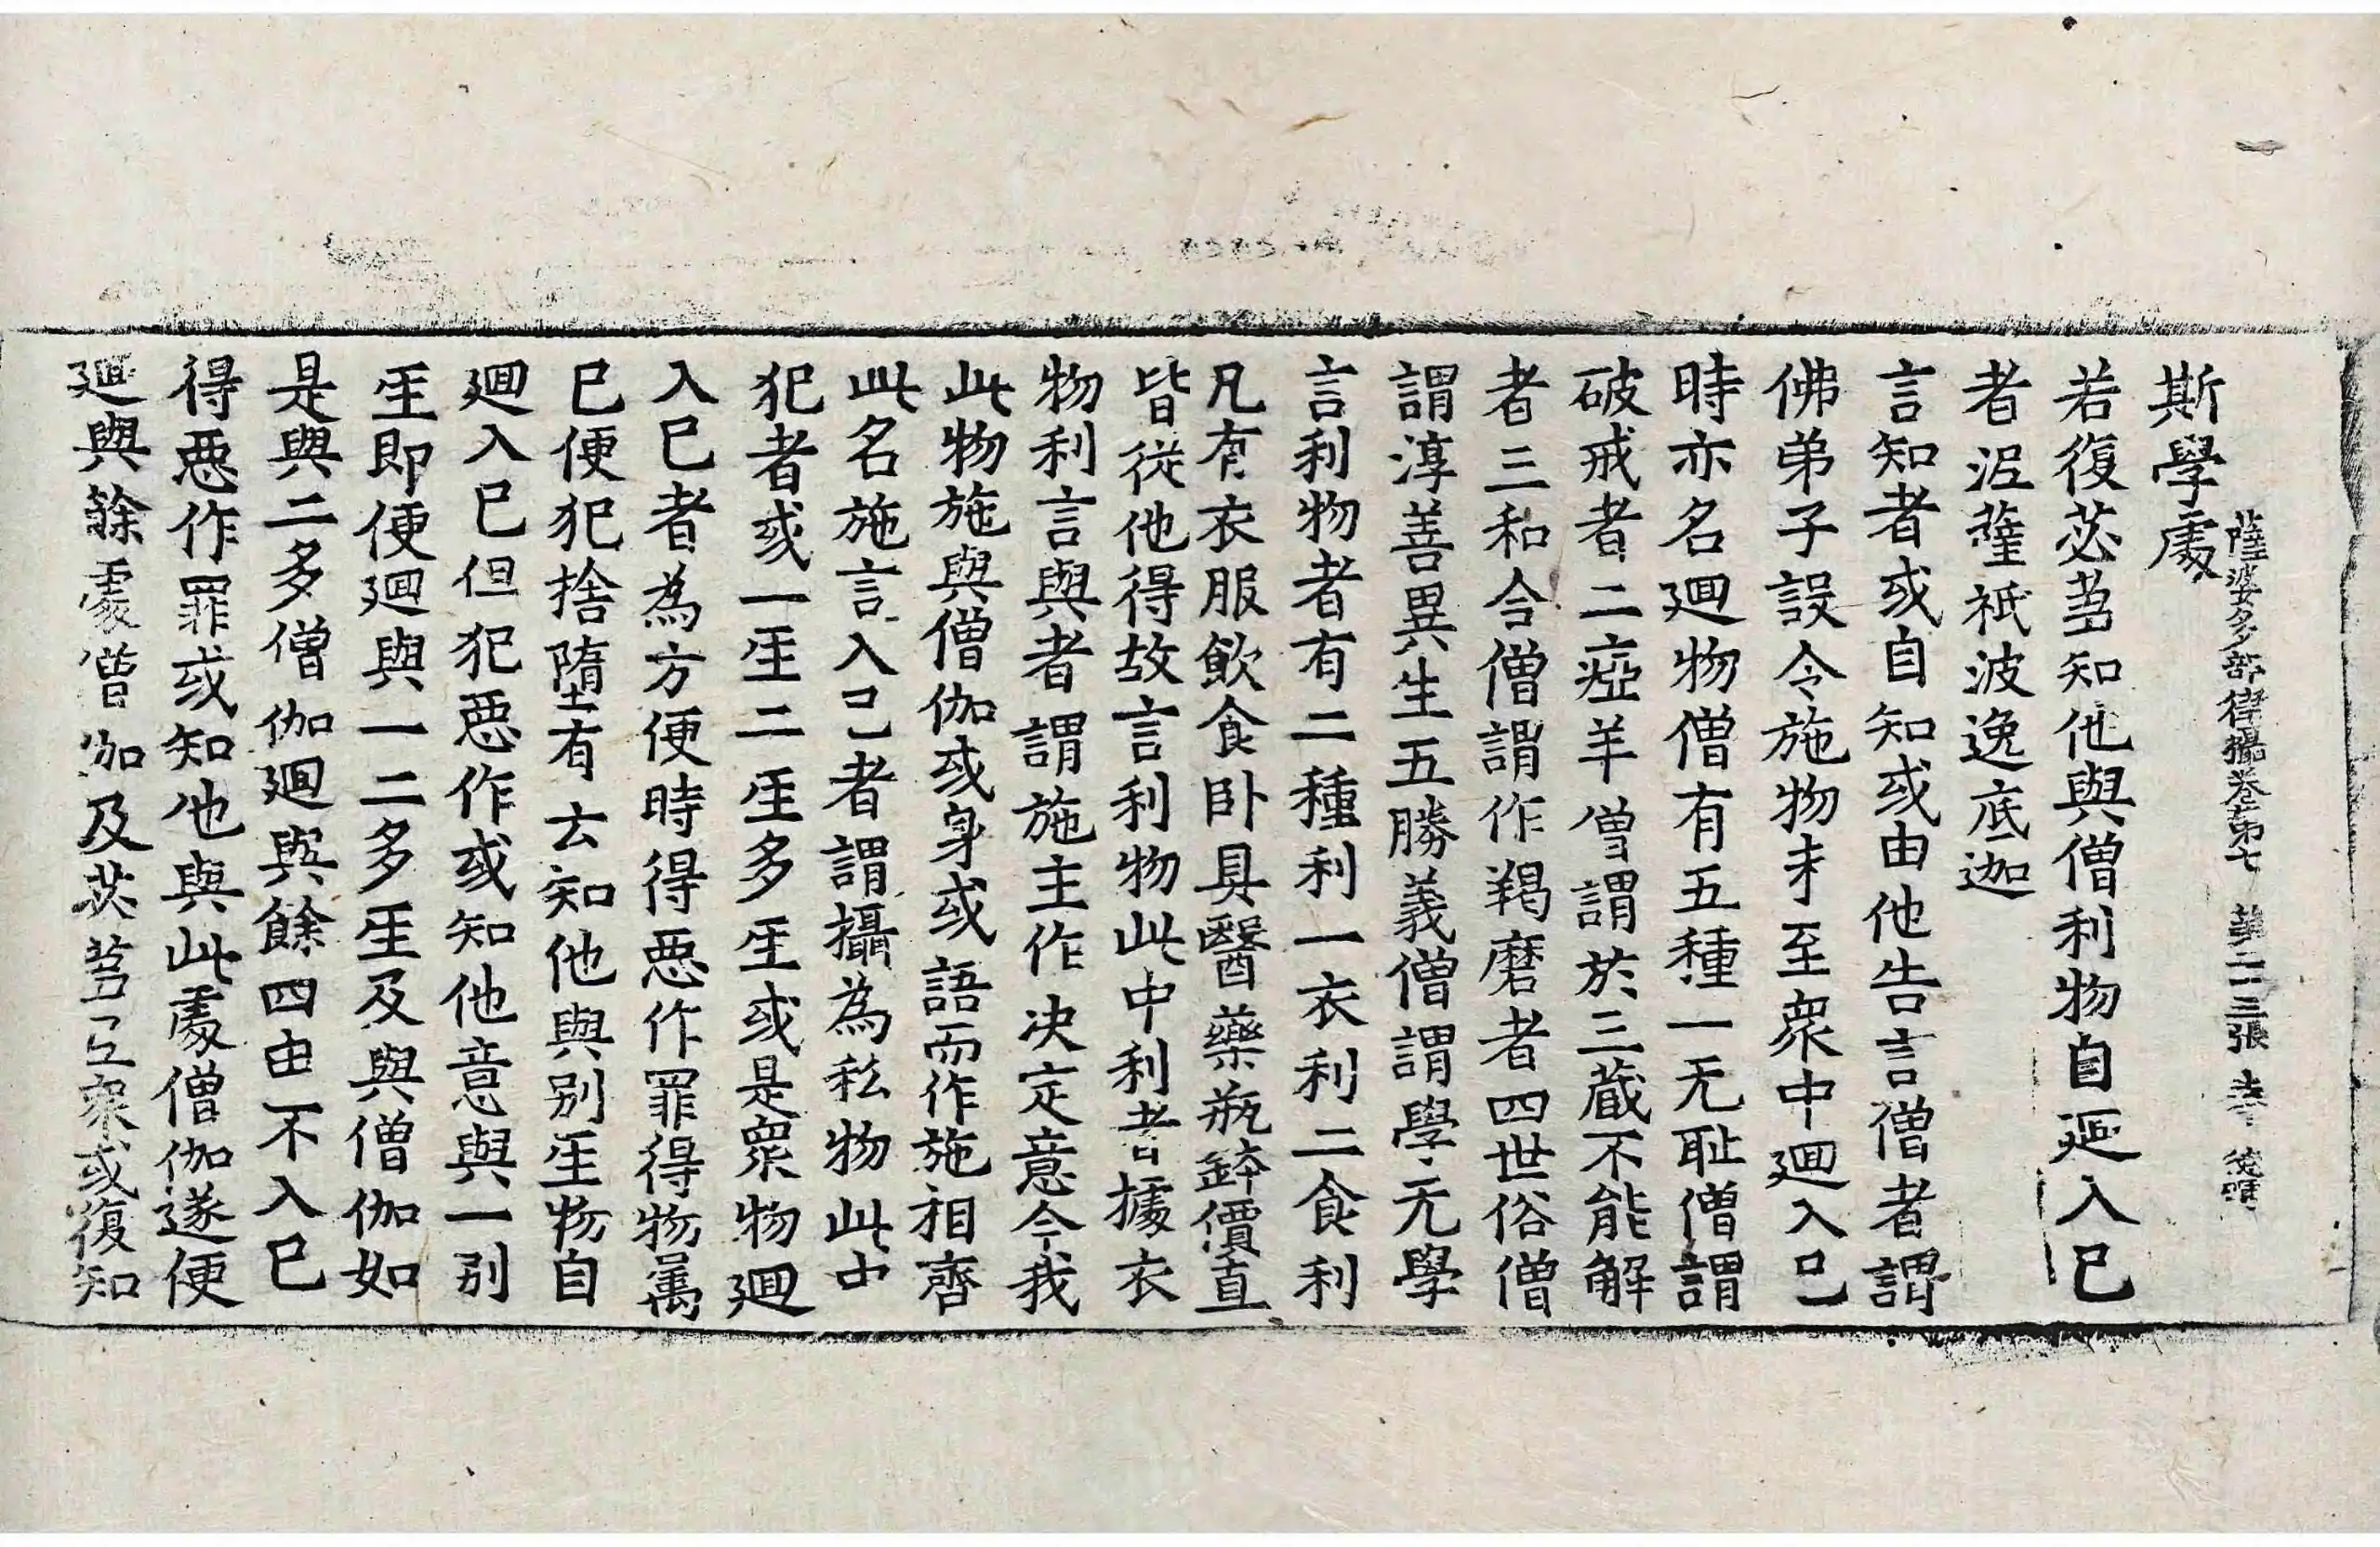 斯學處
薩婆多部律攝卷第七 第二十三張
若復苾蒭知他與僧利物自迴入已
者泥薩祇波逸底迦
言知者或自知或由他告言僧者謂
佛弟子設令施物未至衆中迴入己
時亦名迴物僧有五種一无恥僧謂
破戒者二瘂羊僧謂於三藏不能解
者三和合僧謂作羯磨者四世俗僧
謂淳善異生五勝義僧謂學无學
言利物者有二種利一衣利二食利
凡有衣服飲食卧具醫藥瓶鉢價直
皆從他得故言利物此中利者據衣
物利言與者謂施主作决定意今我
此物施與僧伽或身或語而作施相齊
此名施言入己者謂攝為私物此中
犯者或一𤯔二𤯔多𤯔或是衆物迴
入已者為方便時得惡作罪得物属
已便犯捨墮有云知他與別𤯔物自
迴入已但犯惡作或知他意與一別
𤯔即便迴與一二多𤯔及與僧伽如
是與二多僧伽迴與餘四由不入已
得惡作罪或知他與此處僧伽遂便
迴與餘處僧伽及苾蒭尼衆或復知